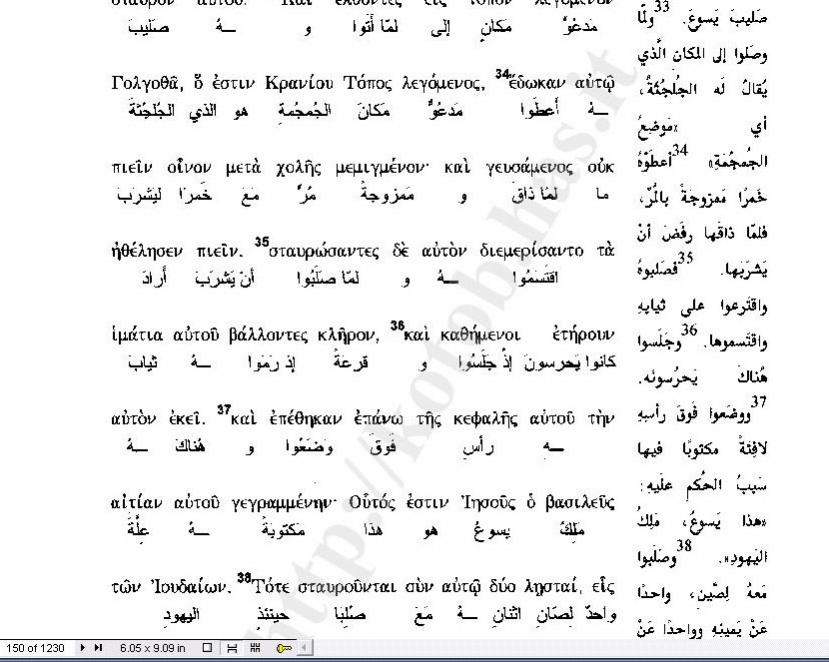 مَدعُوٍّ مكانٍ إلى لمّا أتَوا و ـهُ صليبَ
Γολγοθᾶ, ὅ ἐστιν Κρανίου Τόπος λεγόμενος, 34ἔδωκαν αὐτῷ
ـهُ أعطَوا مَدعُوٌّ مكانَ الجُمجمةِ هو الذي الجُلجُثَةَ
πιεῖν οἶνον μετὰ χολῆς μεμιγμένον· καὶ γευσάμενος οὐκ
ما لمّا ذاقَ و مَمزوجةً مُرٍّ معَ خَمرًا ليَشرَبَ
ἠθέλησεν πιεῖν. 35σταυρώσαντες δὲ αὐτὸν διεμερίσαντο τὰ
اقتَسَمُوا ـهُ و لمّا صلَبُوا أن يَشرَبَ أرادَ
ἱμάτια αὐτοῦ βάλλοντες κλῆρον, 36καὶ καθήμενοι ἐτήρουν
كانوا يَحرسونَ إذْ جلَسُوا و قرعةً إذ رَمَوا ـهُ ثيابَ
αὐτὸν ἐκεῖ. 37καὶ ἐπέθηκαν ἐπάνω τῆς κεφαλῆς αὐτοῦ τὴν
ـهِ رأسِ فوقَ وَضَعُوا و هُناكَ ـهُ
αἰτίαν αὐτοῦ γεγραμμένην· Οὗτός ἐστιν Ἰησοῦς ὁ βασιλεῦς
مَلِكُ يسوعُ هو هذا مكتوبةً ـهُ عِلَّةَ
τῶν Ἰουδαίων. 38Τότε σταυροῦνται σὺν αὐτῷ δύο λῃσταί, εἷς
واحدٌ لصّانِ اثنانِ ـهُ مَعَ صُلِبا حينئذ اليهودِ
صَليبَ يَسوعَ. 33ولمّا
وصَلوا إلى المكان الَّذي
يُقالُ لَه الجُلجُثَةُ،
أي «مَوضِعُ
الجمجُمَةِ» 34أعطَوْهُ
خَمرًا مَمزوجَةً بالمُرِّ،
فلمّا ذاقَها رفَضَ أنْ
يَشرَبَها. 35فصَلبوهُ
واقتَرعوا على ثيابِهِ
واقتَسموها. 36وجَلَسوا
هُناكَ يَحرُسونَه.
37ووضَعوا فَوقَ رأسِهِ
لافِتَةً مكتوبًا فيها
سَببُ الحُكمِ علَيهِ:
«هذا يَسوعُ، مَلِكُ
اليَهودِ». 38وصَلَبوا
معَهُ لِصَّينِ، واحدًا
عَنْ يَمينِهِ وواحدًا عَنْ
http://kotob.has.it
150 of 1230 6.05 x 9.09 in